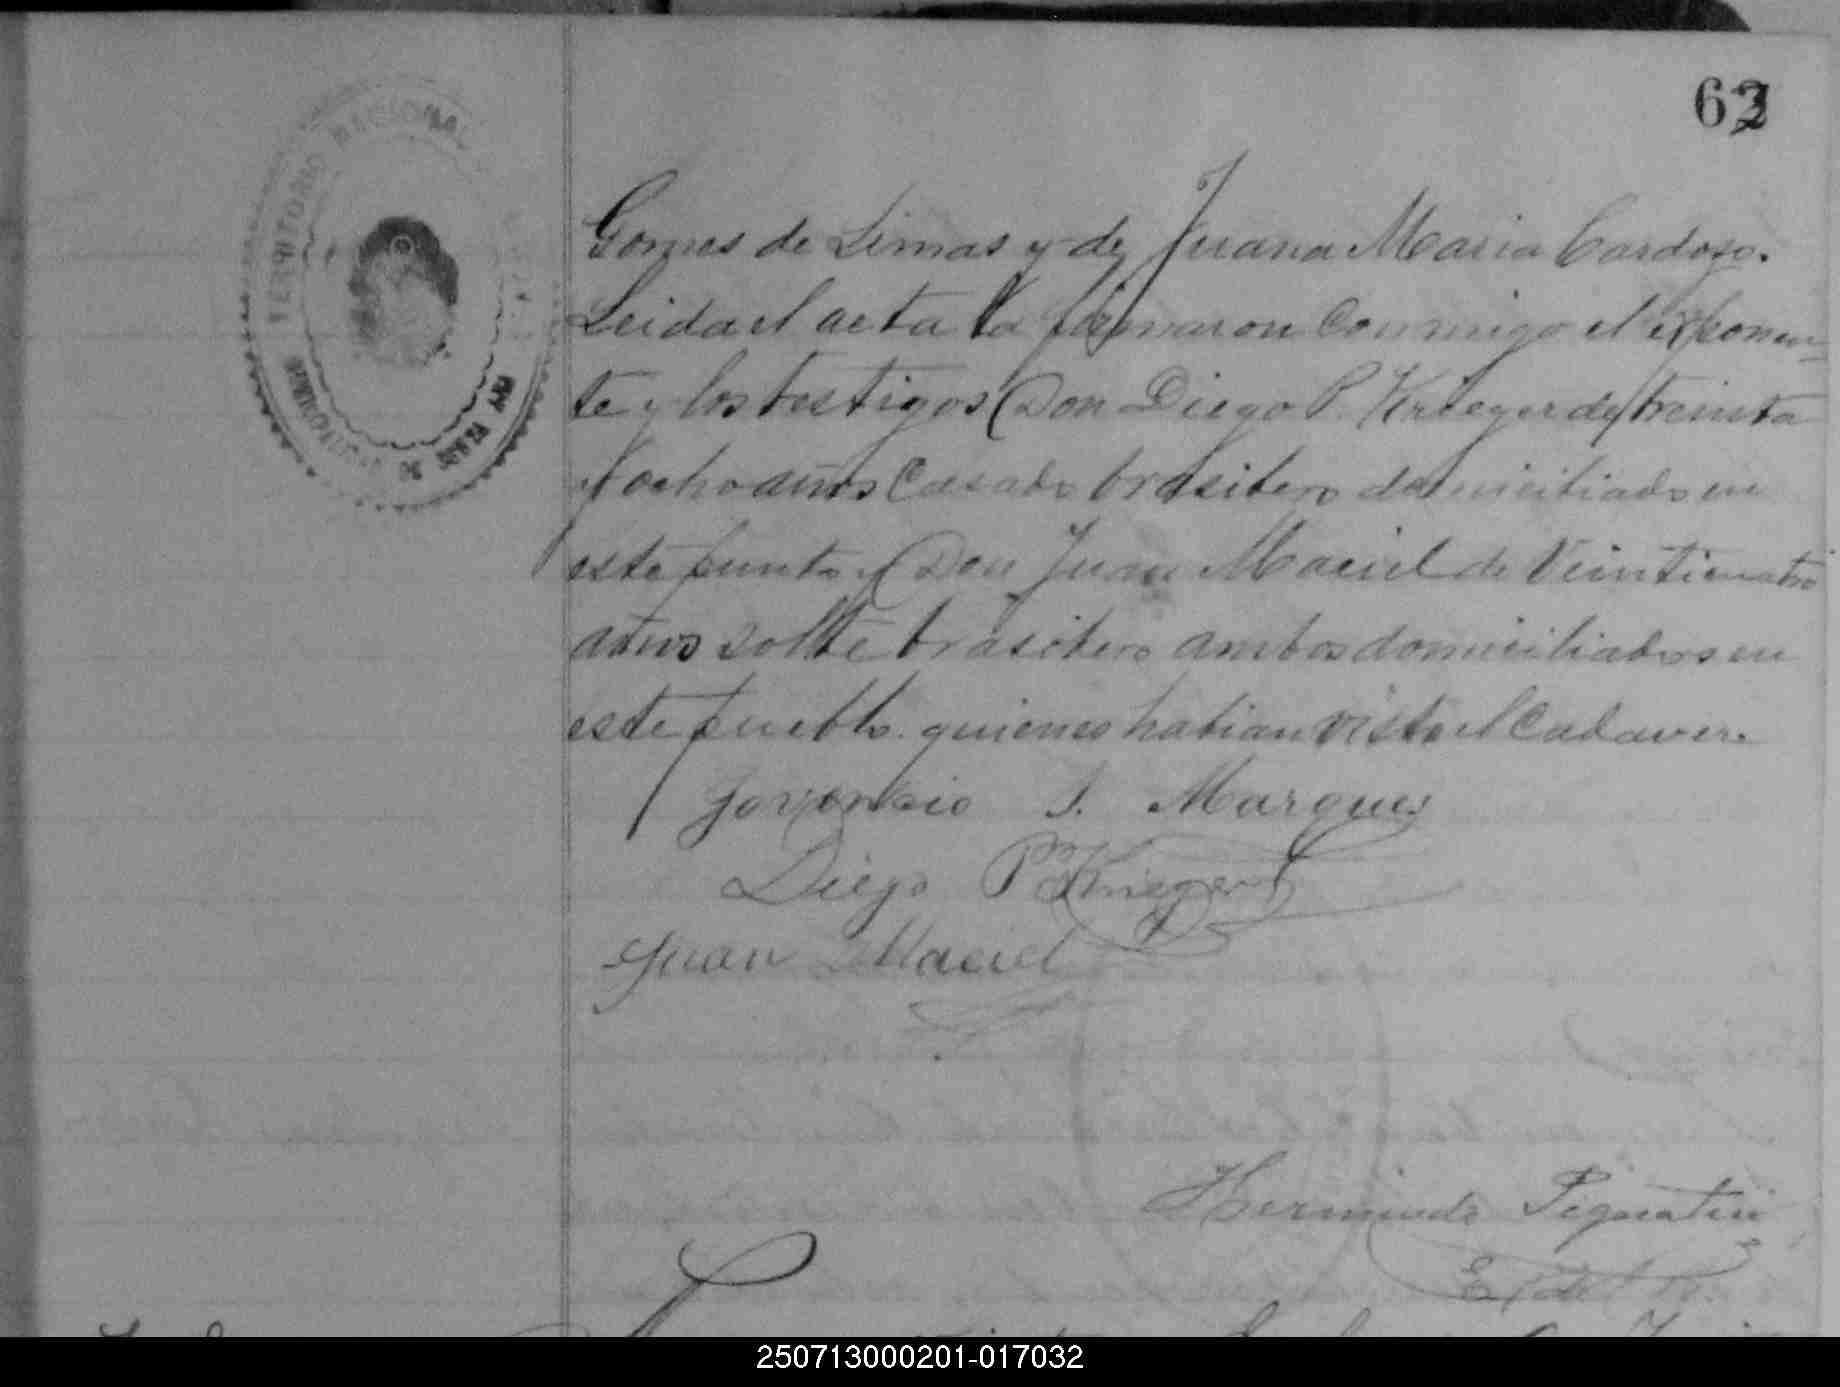 62
TERRITORIO NACIONAL
Gomes de Limas y de Juana Maria Cardozo.
Leida el acta la firmaron conmigo el exponen=
te y los testigos Don Diego P. Krieger de treinta
y ocho años casado brasilero domiciliado en
este punto y Don Juan Maciel de Veinticuatro
años solte brasilero ambos domiciliados en
este pueblo. quienes habian visto el Cadaver.
Jovencio J. Marques
Diego P Krieger
Juan Maciel
Hermindo Pignatari
250713000201-017032